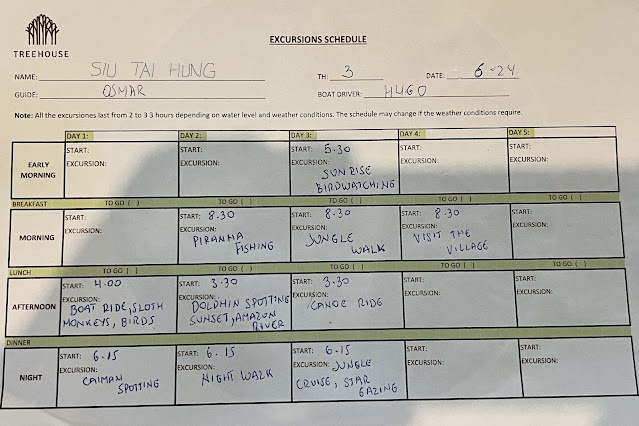 TREEHOUSE
EXCURSIONS SCHEDULE
NAME: SIU TAI HUNG TH: 3 DATE: 6-24
GUIDE: OSMAR BOAT DRIVER: HUGO
Note: All the excursiones last from 2 to 3 3 hours depending on water level and weather conditions. The schedule may change if the weather conditions require.
DAY 1: DAY 2: DAY 3: DAY 4: DAY 5:
EARLY MORNING
START:
EXCURSION:
START:
EXCURSION:
START: 5.30
EXCURSION:
SUNRISE
BIRDWATCHING
START:
EXCURSION:
START:
EXCURSION:
BREAKFAST TO GO ( ) TO GO ( ) TO GO ( ) TO GO ( ) TO GO ( )
MORNING
START:
EXCURSION:
START: 8.30
EXCURSION:
PIRANHA
FISHING
START: 8.30
EXCURSION:
JUNGLE
WALK
START: 8.30
EXCURSION:
VISIT THE
VILLAGE
START:
EXCURSION:
LUNCH TO GO ( ) TO GO ( ) TO GO ( ) TO GO ( ) TO GO ( )
AFTERNOON
START: 4.00
EXCURSION:
BOAT RIDE, SLOTH
MONKEYS, BIRDS
START: 3.30
EXCURSION:
DOLPHIN SPOTTING
SUNSET, AMAZON
RIVER
START: 3.30
EXCURSION:
CANOE RIDE
START:
EXCURSION:
START:
EXCURSION:
DINNER
NIGHT
START: 6.15
EXCURSION:
CAIMAN
SPOTTING
START: 6.15
EXCURSION:
NIGHT WALK
START: 6.15
EXCURSION: JUNGLE
CRUISE, STAR
GAZING
START:
EXCURSION:
START:
EXCURSION: